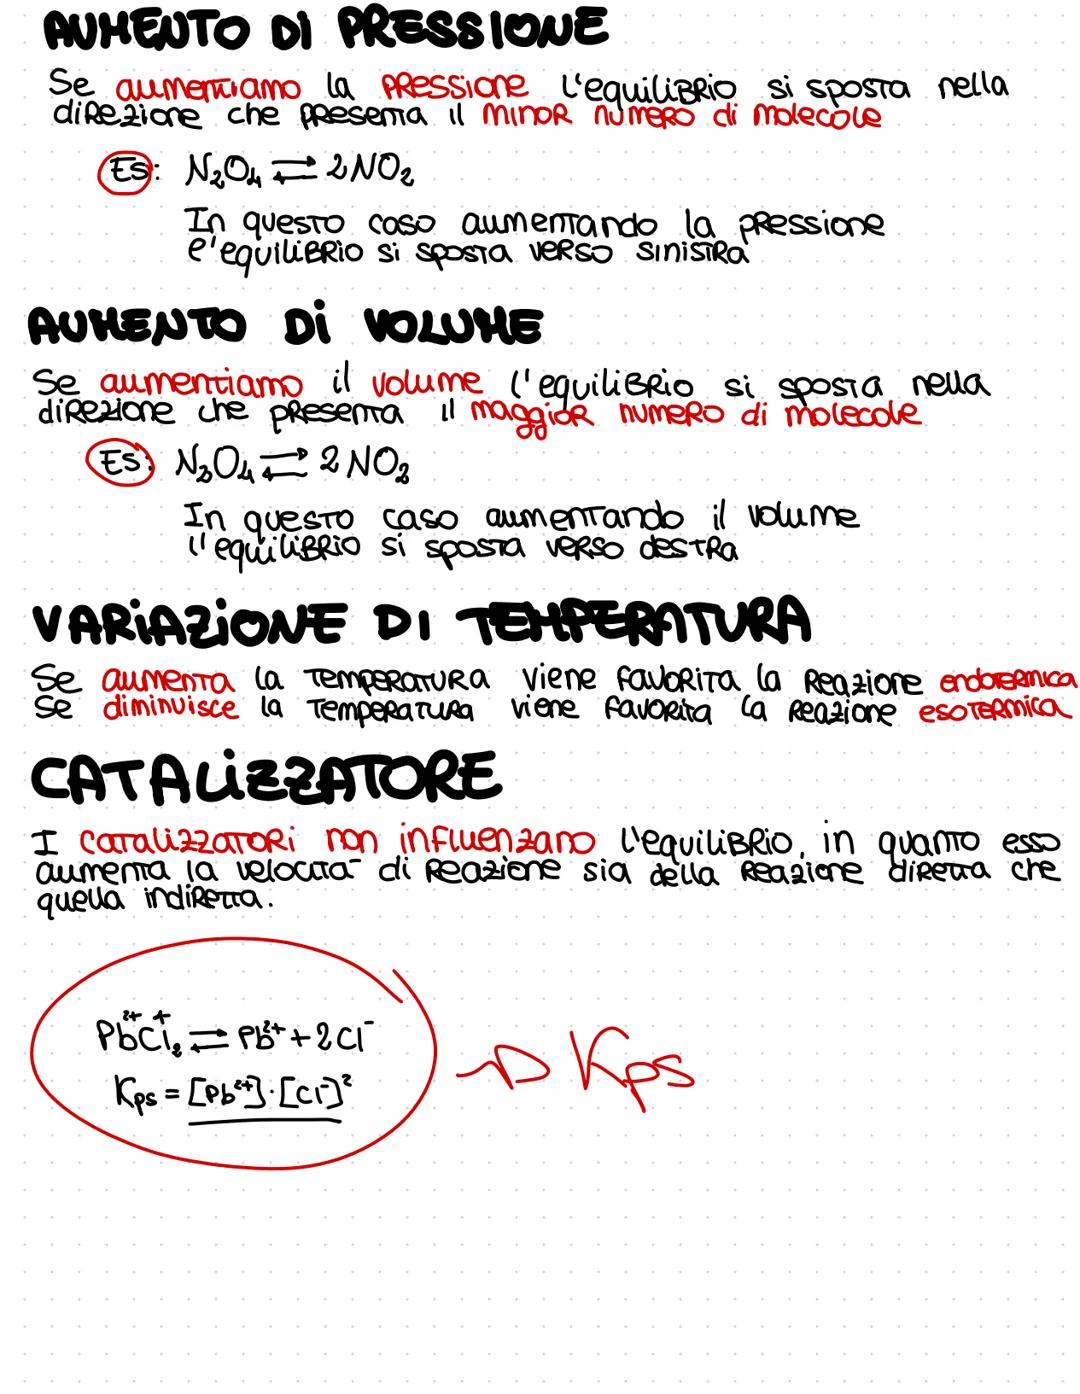 AUMENTO Di PRESSIONE
Se aumentiamo la PRessione l'equiliBRio si sposta nella
diRezione che pResenta il minoR numeRo di molecole
Es: N₂O₄ ⇄ 2NO₂
In questo caso aumentando la pRessione
l'equiliBRio si sposta veRso sinistRa
AUMENTO Di VOLUME
Se aumentiamo il volume l'equiliBRio si sposta nella
diRezione che pResenta il maggioR numeRo di molecole
Es: N₂O₄ ⇄ 2NO₂
In questo caso aumentando il volume
l'equiliBRio si sposta veRso destRa
VARiAZiONE Di TEMPERATURA
Se aumenta la TempeRatuRa viene favoRita la Reazione endoteRmica
Se diminuisce la TempeRatuRa viene favoRita la Reazione esoteRmica
CATALiZZATORE
I catalizzatoRi non influenzano l'equiliBRio, in quanto esso
aumenta la velocità di Reazione sia della Reazione diRetta che
quella indiRetta.
Pb²⁺Cl⁺₂ ⇄ Pb²⁺ + 2Cl⁻
Kps = [Pb²⁺]·[Cl⁻]²
Kps